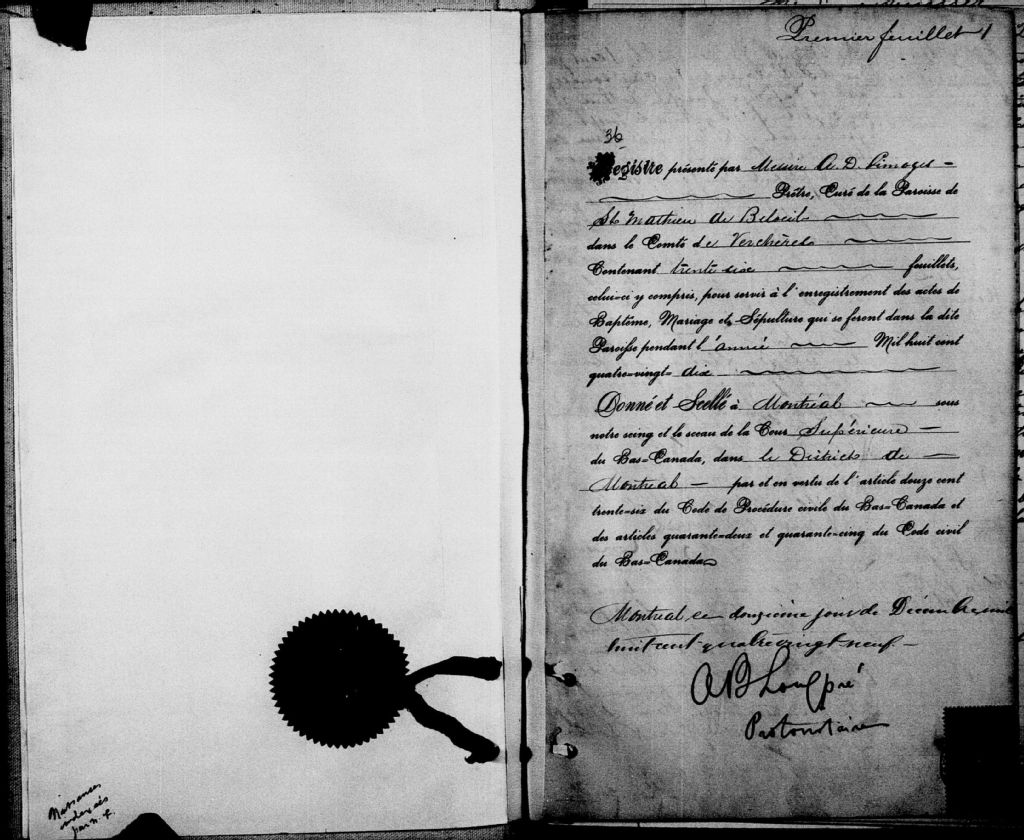 Premier feuillet 1
36
Registre présenté par Messire A. D. Limoges
Prêtre, Curé de la Paroisse de
St Mathieu de Belœil
dans le Comté de Verchères
Contenant trente-six feuillets,
celui-ci y compris, pour servir à l'enregistrement des actes de
Baptême, Mariage et Sépulture qui se feront dans la dite
Paroisse pendant l'année Mil huit cent
quatre-vingt-dix
Donné et Scellé à Montréal sous
notre seing et le sceau de la Cour Supérieure
du Bas-Canada, dans le District de
Montréal par et en vertu de l'article douze cent
trente-six du Code de Procédure civile du Bas-Canada et
des articles quarante-deux et quarante-cinq du Code civil
du Bas-Canada
Montréal, ce douzième jour de Décembre mil
huit cent quatre vingt neuf.
A B Longpré
Protonotaire
Naissances
indexées
par